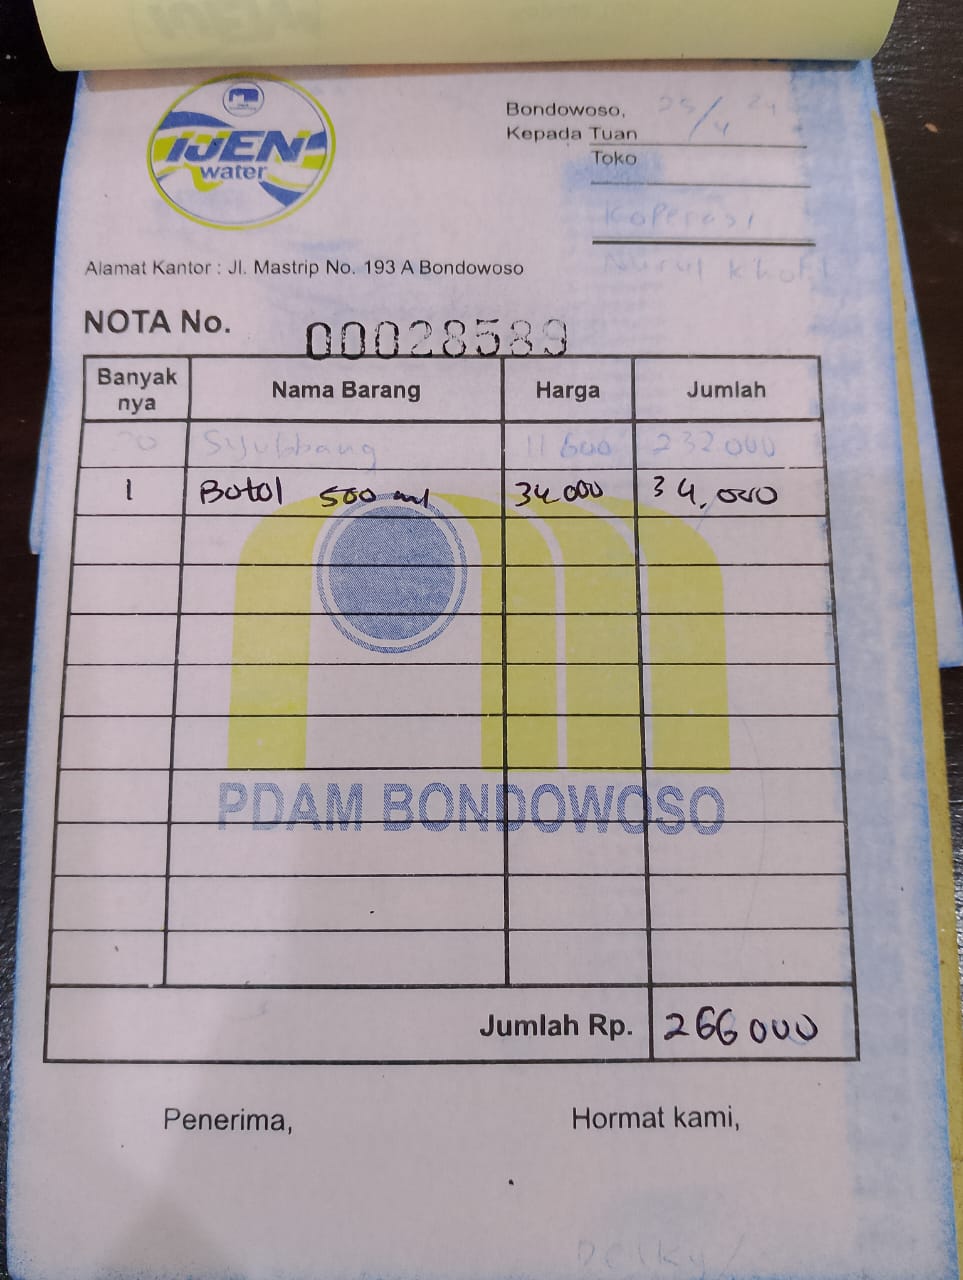 IJEN
water
Bondowoso, 25/4 24
Kepada Tuan
Toko
Koperasi
Nurul Khotil
Alamat Kantor : Jl. Mastrip No. 193 A Bondowoso
NOTA No. 00028589
Banyak nya Nama Barang Harga Jumlah
20 Syubbang 11 600 232.000
1 Botol 500 ml 34.000 34.000
PDAM BONDOWOSO
Jumlah Rp. 266 000
Penerima, Hormat kami,